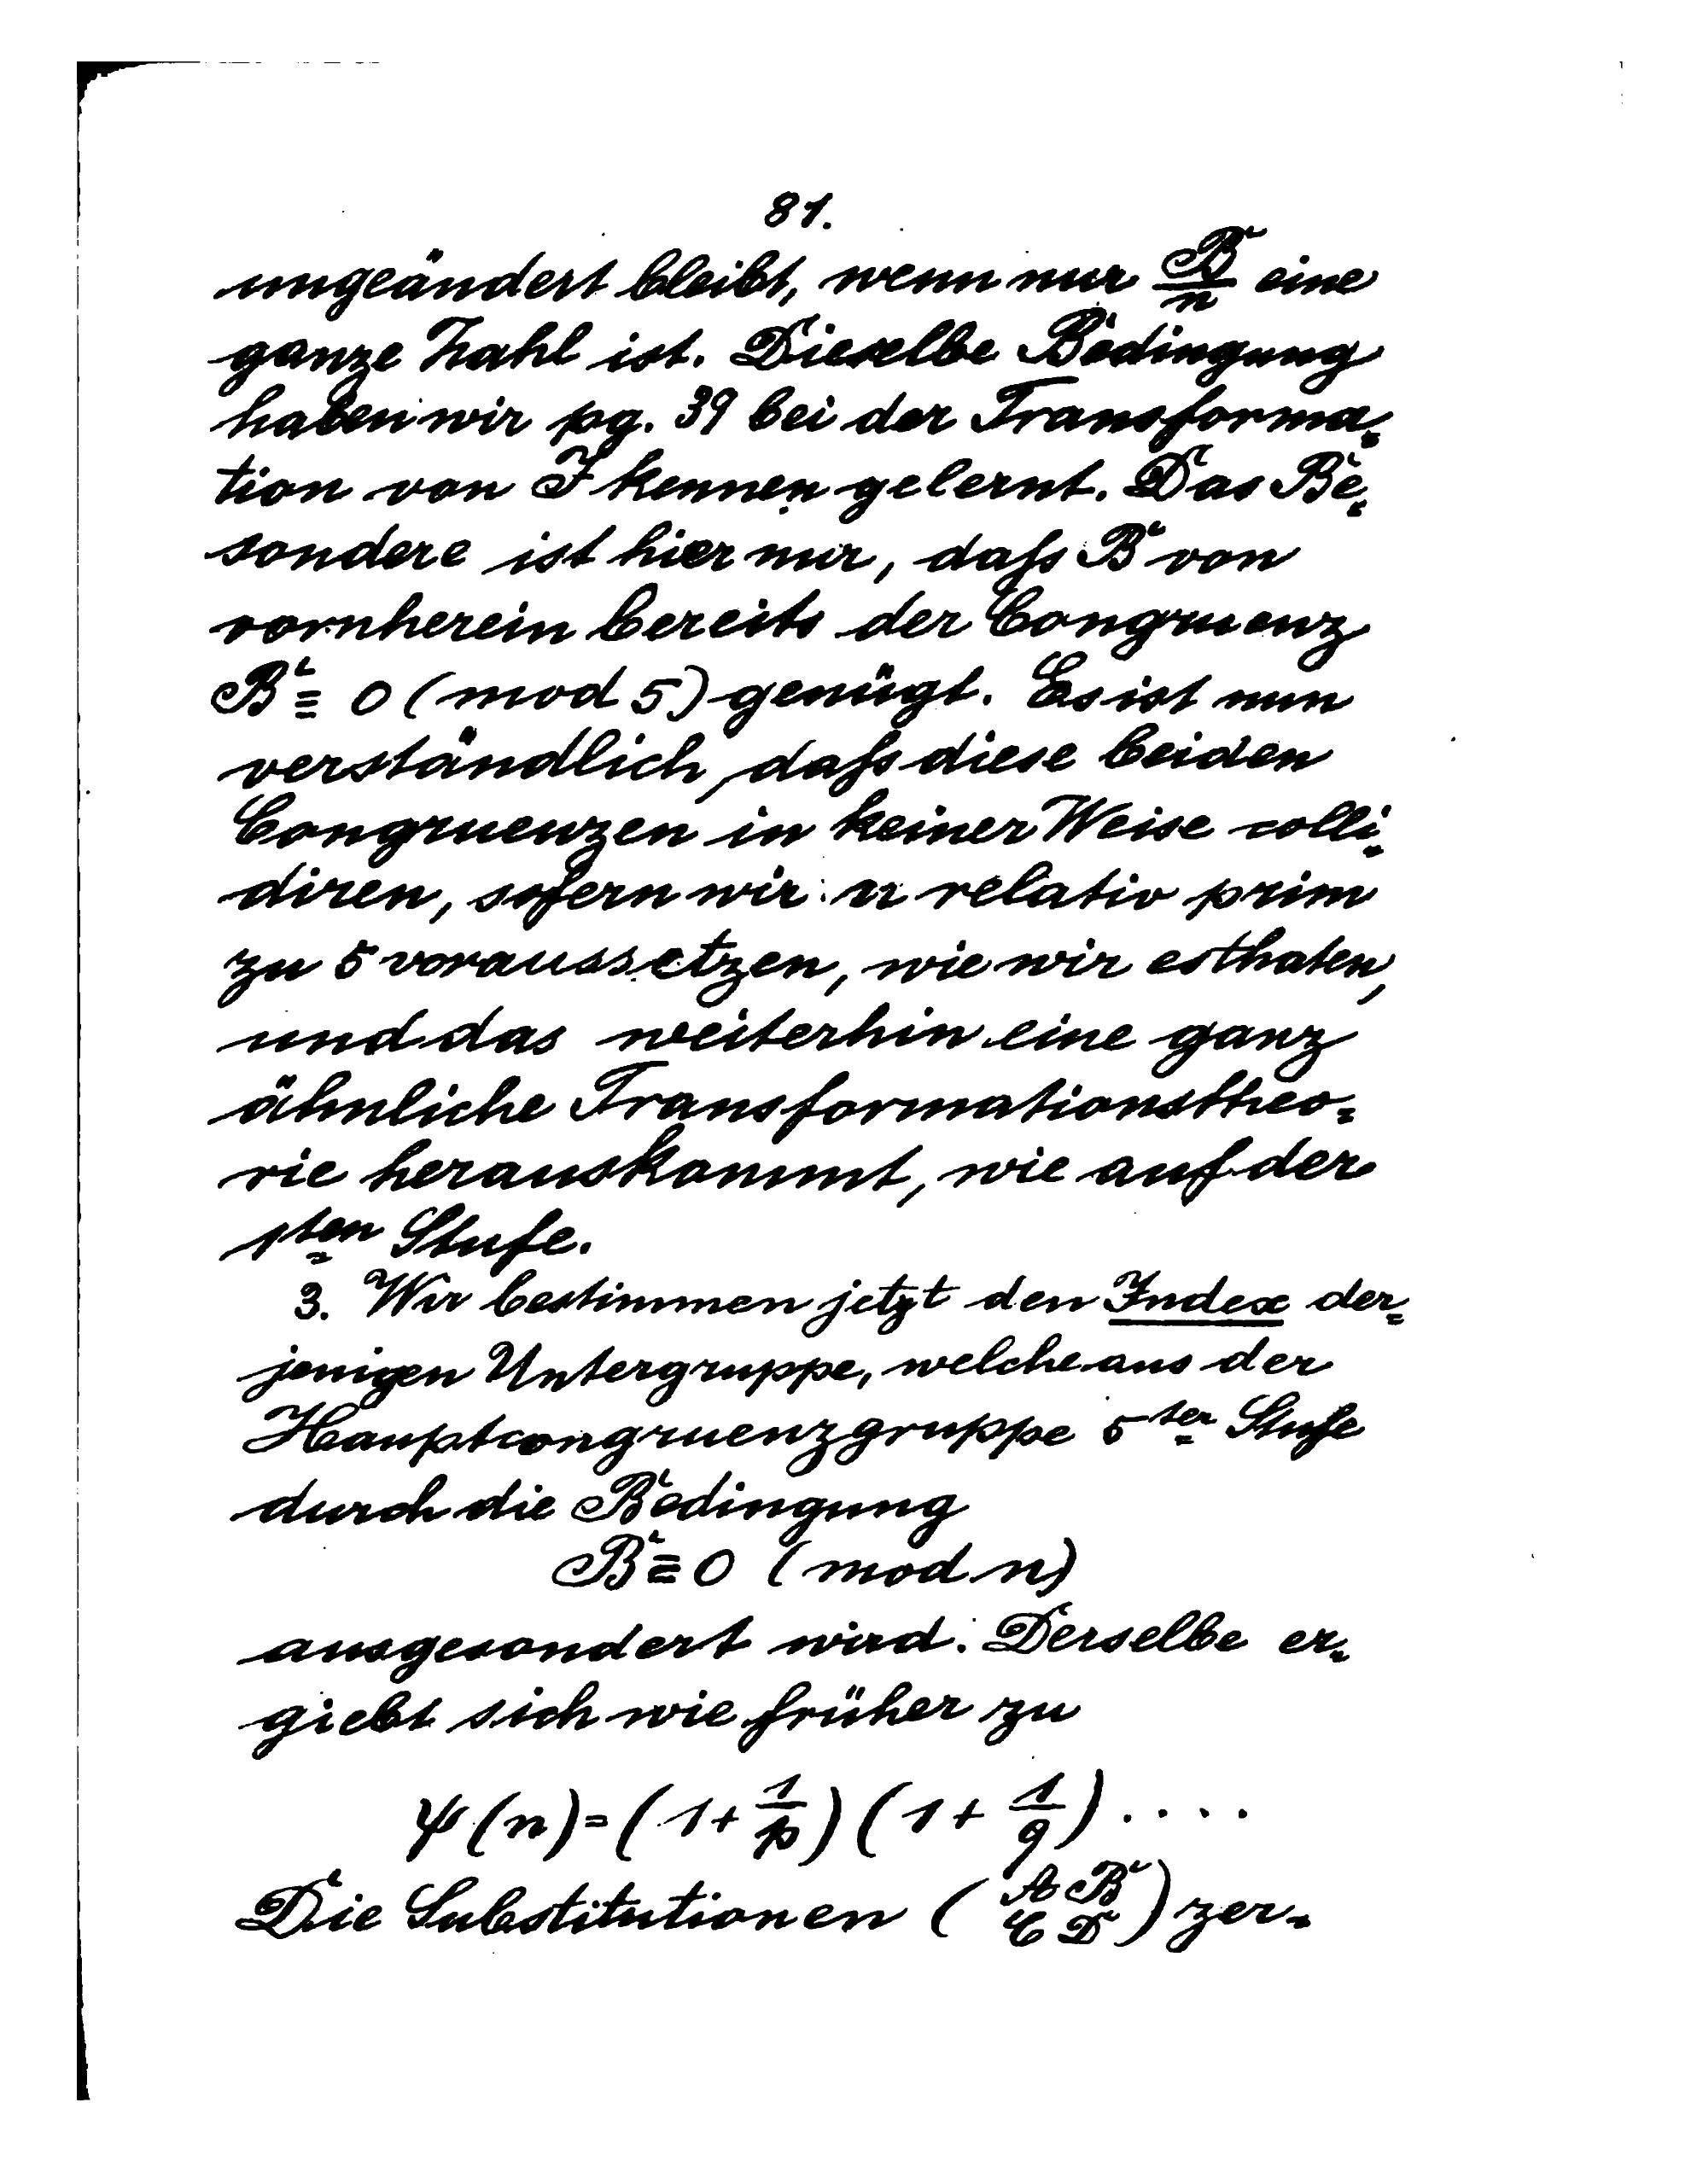 81.
ungeändert bleibt, wenn nur B/n eine
ganze Zahl ist. Dieselbe Bedingung
haben wir pg. 39 bei der Transforma=
tion von J kennen gelernt. Das Be=
sondere ist hier nur, daſs B von
vornherein bereits der Congruenz
B ≡ 0 (mod 5) genügt. Es ist nun
verständlich, daſs diese beiden
Congruenzen in keiner Weise colli=
diren, sofern wir n relativ prim
zu 5 voraussetzen, wie wir es thaten,
und das weiterhin eine ganz
ähnliche Transformationstheo=
rie herauskommt, wie auf der
1ten Stufe.
3. Wir bestimmen jetzt den Index der=
jenigen Untergruppe, welche aus der
Hauptcongruenzgruppe 5ter Stufe
durch die Bedingung
B ≡ 0 (mod n)
ausgesondert wird. Derselbe er=
giebt sich wie früher zu
ψ(n) = (1 + 1/p) (1 + 1/q) ....
Die Substitutionen (A B
C D) zer=